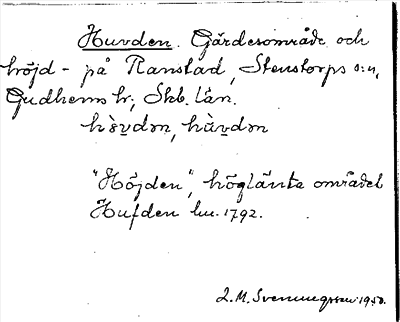 Huvden. Gärdesområde och
höjd - på Ranstad, Stenstorps s:n,
Gudhems hr, Skb. län.
hùvdən, hàvdən
"Höjden", höglänta området
Hufden lm. 1792.
L.M. Svenungsson 1950.